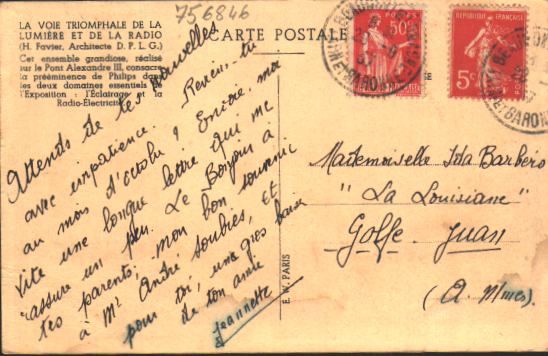 756846
LA VOIE TRIOMPHALE DE LA
LUMIÈRE ET DE LA RADIO
(H. Favier, Architecte D. P. L. G.)
Cet ensemble grandiose, réalisé
sur le Pont Alexandre III, consacre
la prééminence de Philips dans
les deux domaines essentiels de
l'Exposition : l'Éclairage et la
Radio-Électricité.
CARTE POSTALE
POSTES
50c
RÉPUBLIQUE FRANÇAISE
5c
Attends de tes nouvelles
avec impatience. Reviens-tu
au mois d'octobre ? Écris-moi
vite une longue lettre qui me
rassure un peu. Le Bonjour à
tes parents, mon bon souvenir
à Mr André Soubres, et
pour toi, une gros baiser
de ton amie
Jeannette
E. W. PARIS
Mademoiselle Ida Barbéro
"La Louisiane"
Golfe-Juan
(A. Mmes)